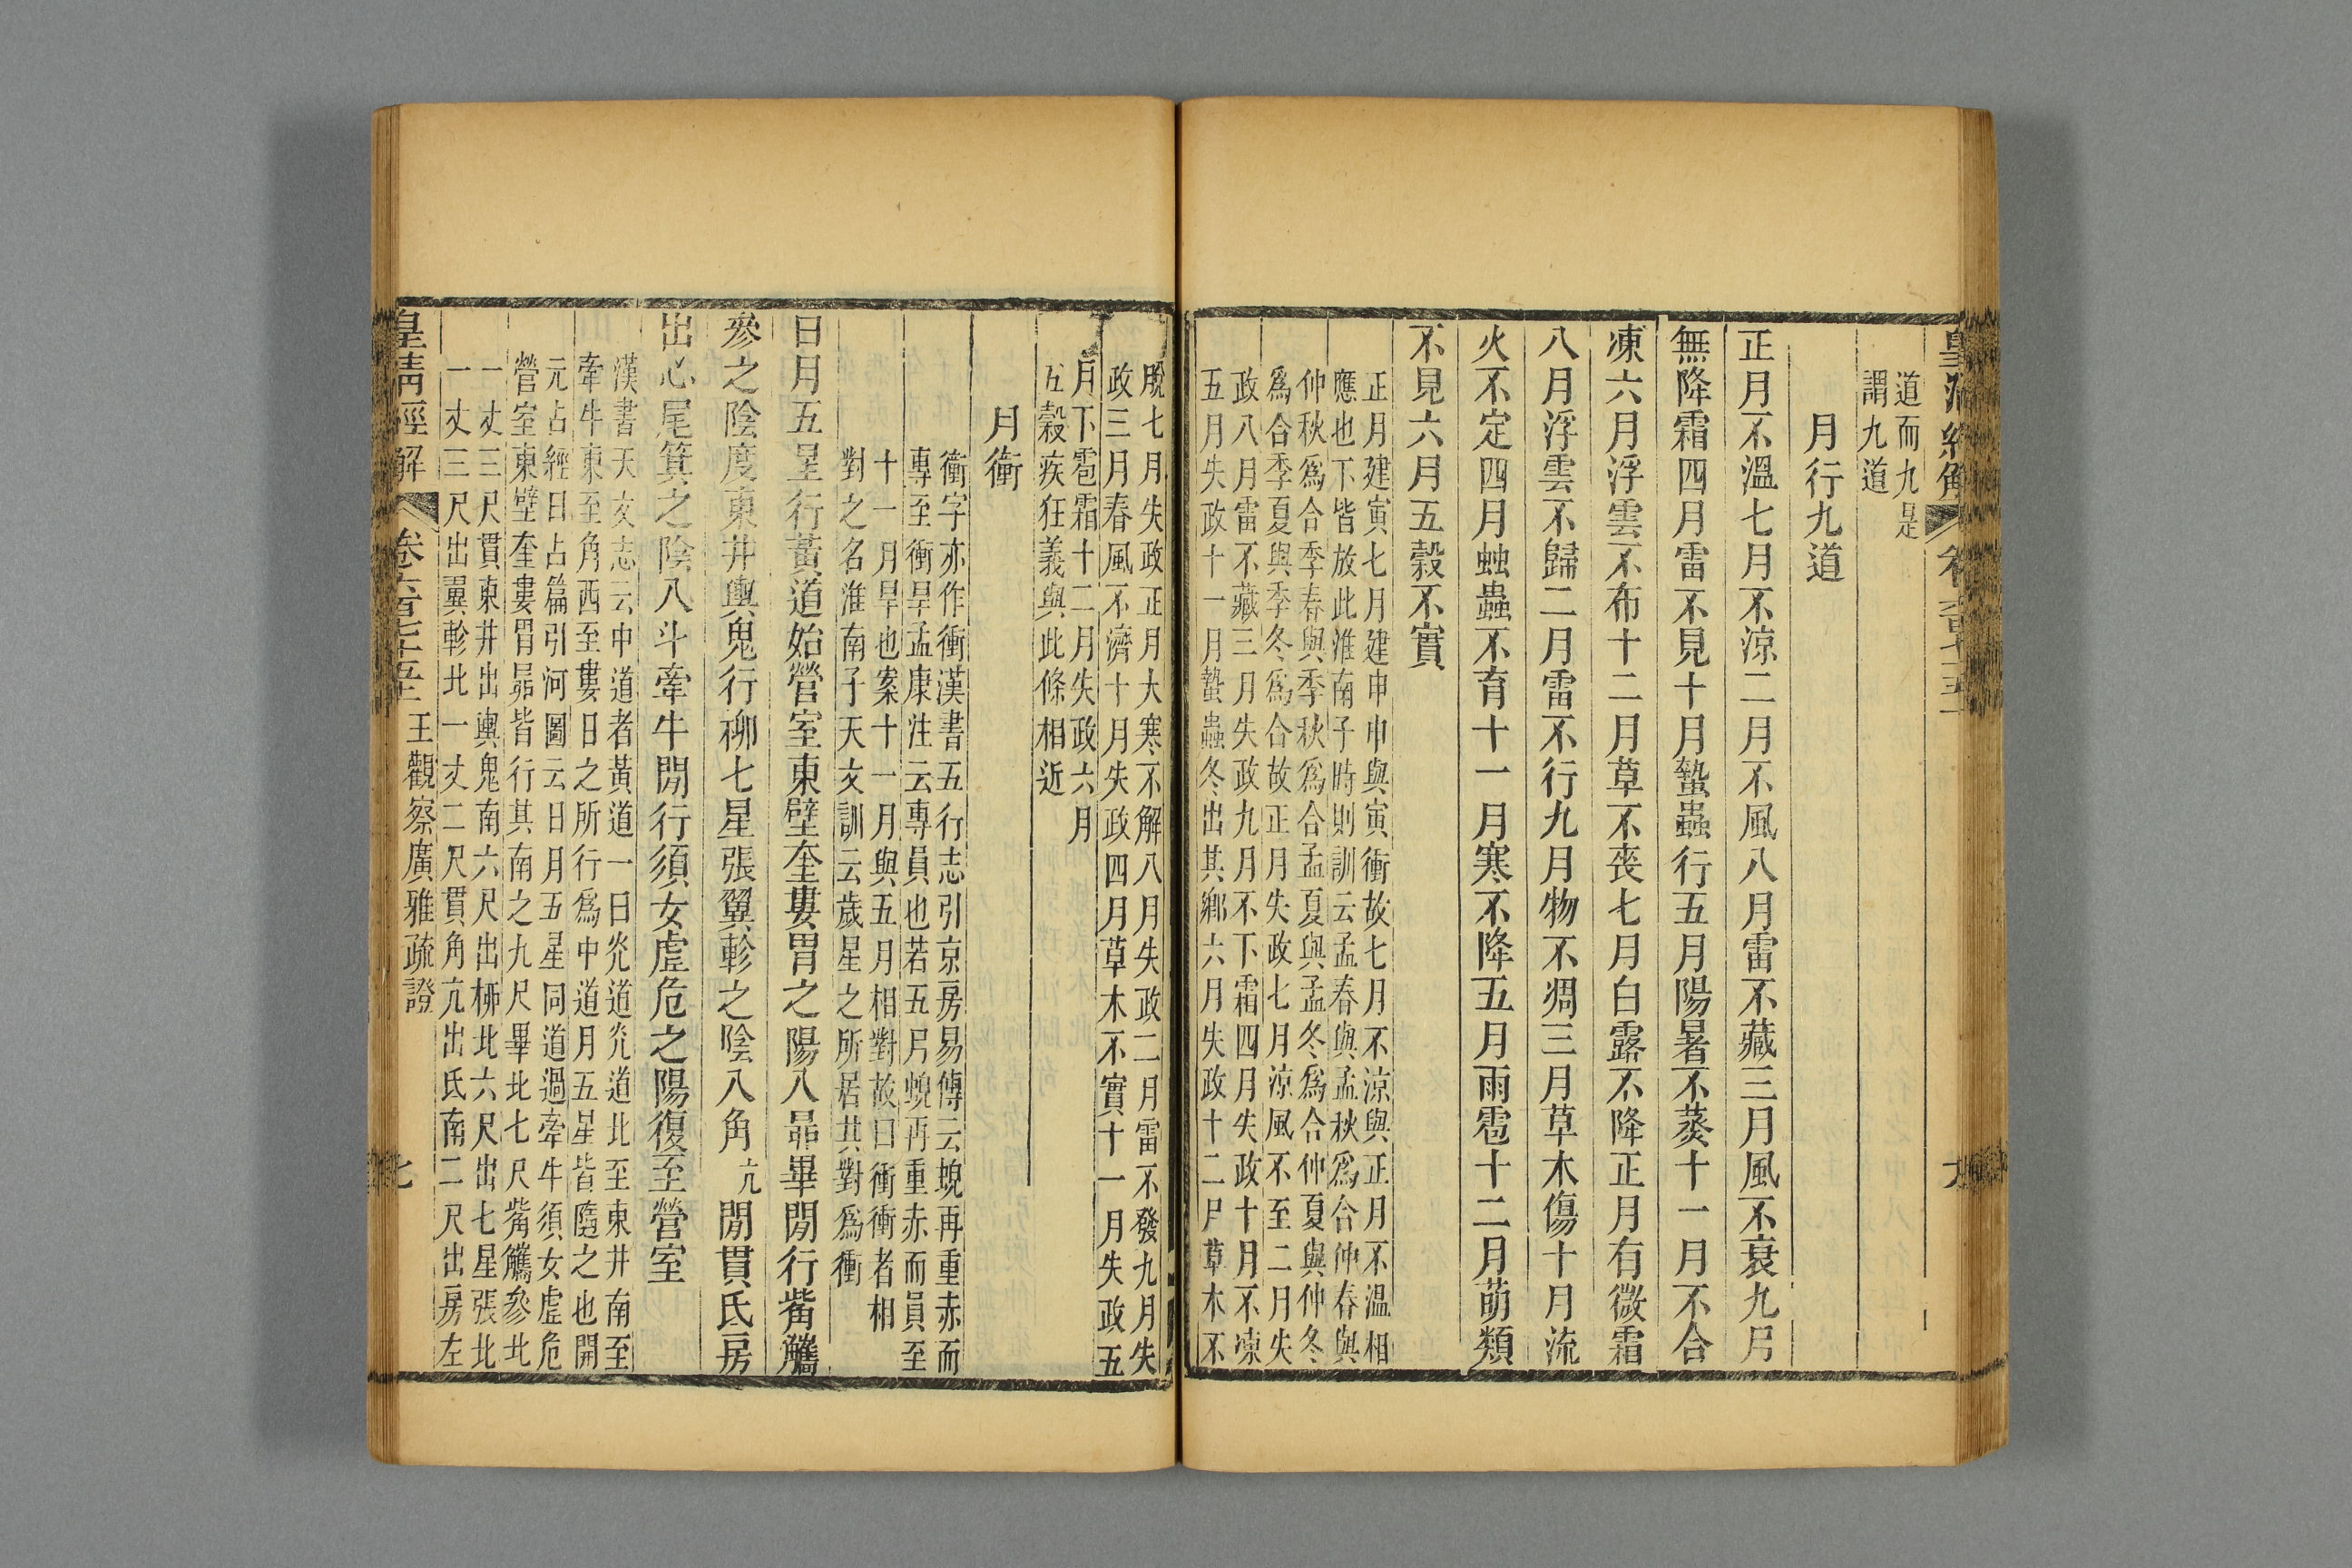 皇清經解
道而九是
謂九道
月行九道
正月不溫七月不涼二月不風八月雷不藏三月風不衰九月
無降霜四月雷不見十月蟄蟲行五月陽暑不蒸十一月不合
凍六月浮雲不布十二月草不喪七月白露不降正月有微霜
八月浮雲不歸二月雷不行九月物不凋三月草木傷十月流
火不定四月蚰蟲不育十一月寒不降五月雨雹十二月萌類
不見六月五穀不實
正月建寅七月建申申與寅衝故七月不涼與正月不溫相
應也下皆放此淮南子時則訓云孟春與孟秋爲合仲春與
仲秋爲合季春與季秋爲合孟夏與孟冬爲合仲夏與仲冬
爲合季夏與季冬爲合故正月失政七月涼風不至二月失
政八月雷不藏三月失政九月不下霜四月失政十月不凍
五月失政十一月蟄蟲冬出其鄉六月失政十二月草木不
脫七月失政正月大寒不解八月失政二月雷不發九月失
政三月春風不濟十月失政四月草木不實十一月失政五
月下雹霜十二月失政六月
五穀疾狂義與此條相近
月衝
衝字亦作衝漢書五行志引京房易傳云蜺再重赤而
專至衝旱孟康注云專員也若五月蜺再重赤而員至
十一月旱也案十一月與五月相對故曰衝衝者相
對之名淮南子天文訓云歲星之所居其對爲衝
日月五星行黃道始營室東壁奎婁胃之陽入昴畢閒行觜觿
參之陰度東井輿鬼行柳七星張翼軫之陰入角亢閒貫氐房
出心尾箕之陰入斗牽牛閒行須女虛危之陽復至營室
漢書天文志云中道者黃道一曰光道光道北至東井南至
牽牛東至角西至婁日之所行爲中道月五星皆隨之也開
元占經日占篇引河圖云日月五星同道過牽牛須女虛危
營室東壁奎婁胃昴皆行其南之九尺畢北七尺觜觿參北
一丈三尺貫東井出輿鬼南六尺出柳北六尺出七星張北
一丈三尺出翼軫北一丈二尺貫角亢出氐南二尺出房左
皇清經解 王觀察廣雅疏證